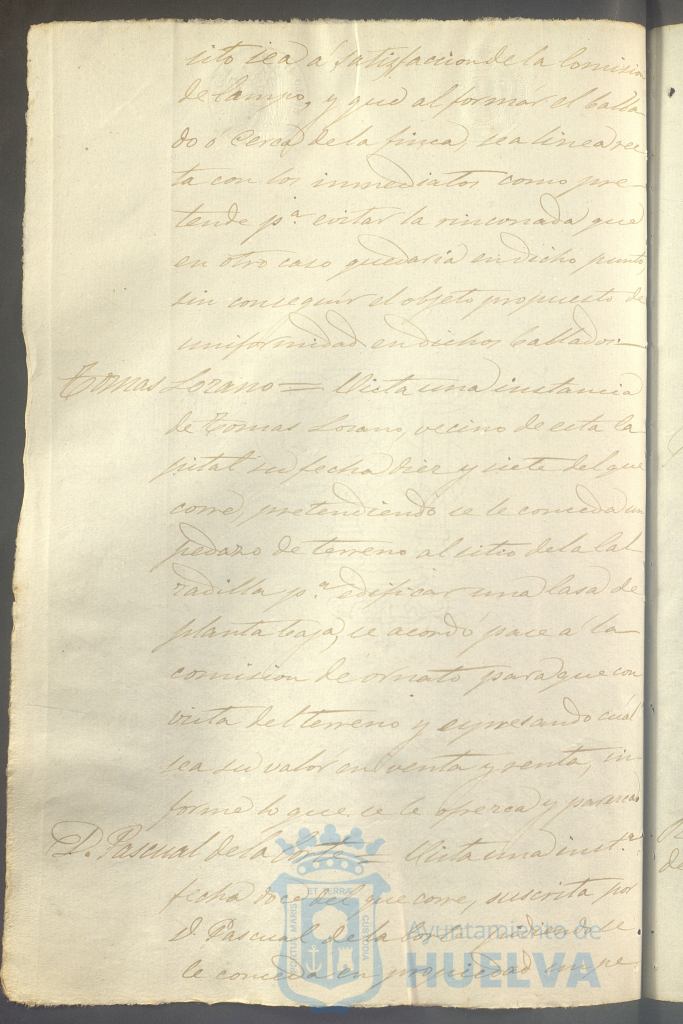 sito sea á satisfaccion de la Comision
de Campo, y que al formár el balla
do ó Cerca de la finca, sea linea rec
ta con los inmediatos como pre-
tende p.ª evitar la rinconada que
en otro caso quedaria en dicho punto,
sin conseguir el objeto propuesto de
uniformidad en dichos ballados=
Tomas Lozano = Vista una instancia
de Tomas Lozano, vecino de esta Ca
pital su fecha diez y siete del que
corre, pretendiendo se le conceda un
pedazo de terreno al sitio de la Cal
zadilla p.ª edificar una Casa de
planta baja, se acordó pase á la
comision de ornato para que con
vista del terreno y espresando cuál
sea su valór en venta y renta, in-
forme lo que se le ofrezca y parezca
D. Pascual de la Corte = Vista una inst.ª
fecha doce del que corre, suscrita por
D. Pascual de la Corte pidiendo se
le conceda en propiedad un pe
PORTUS MARIS ET TERRÆ CUSTODIA
Ayuntamiento de
HUELVA